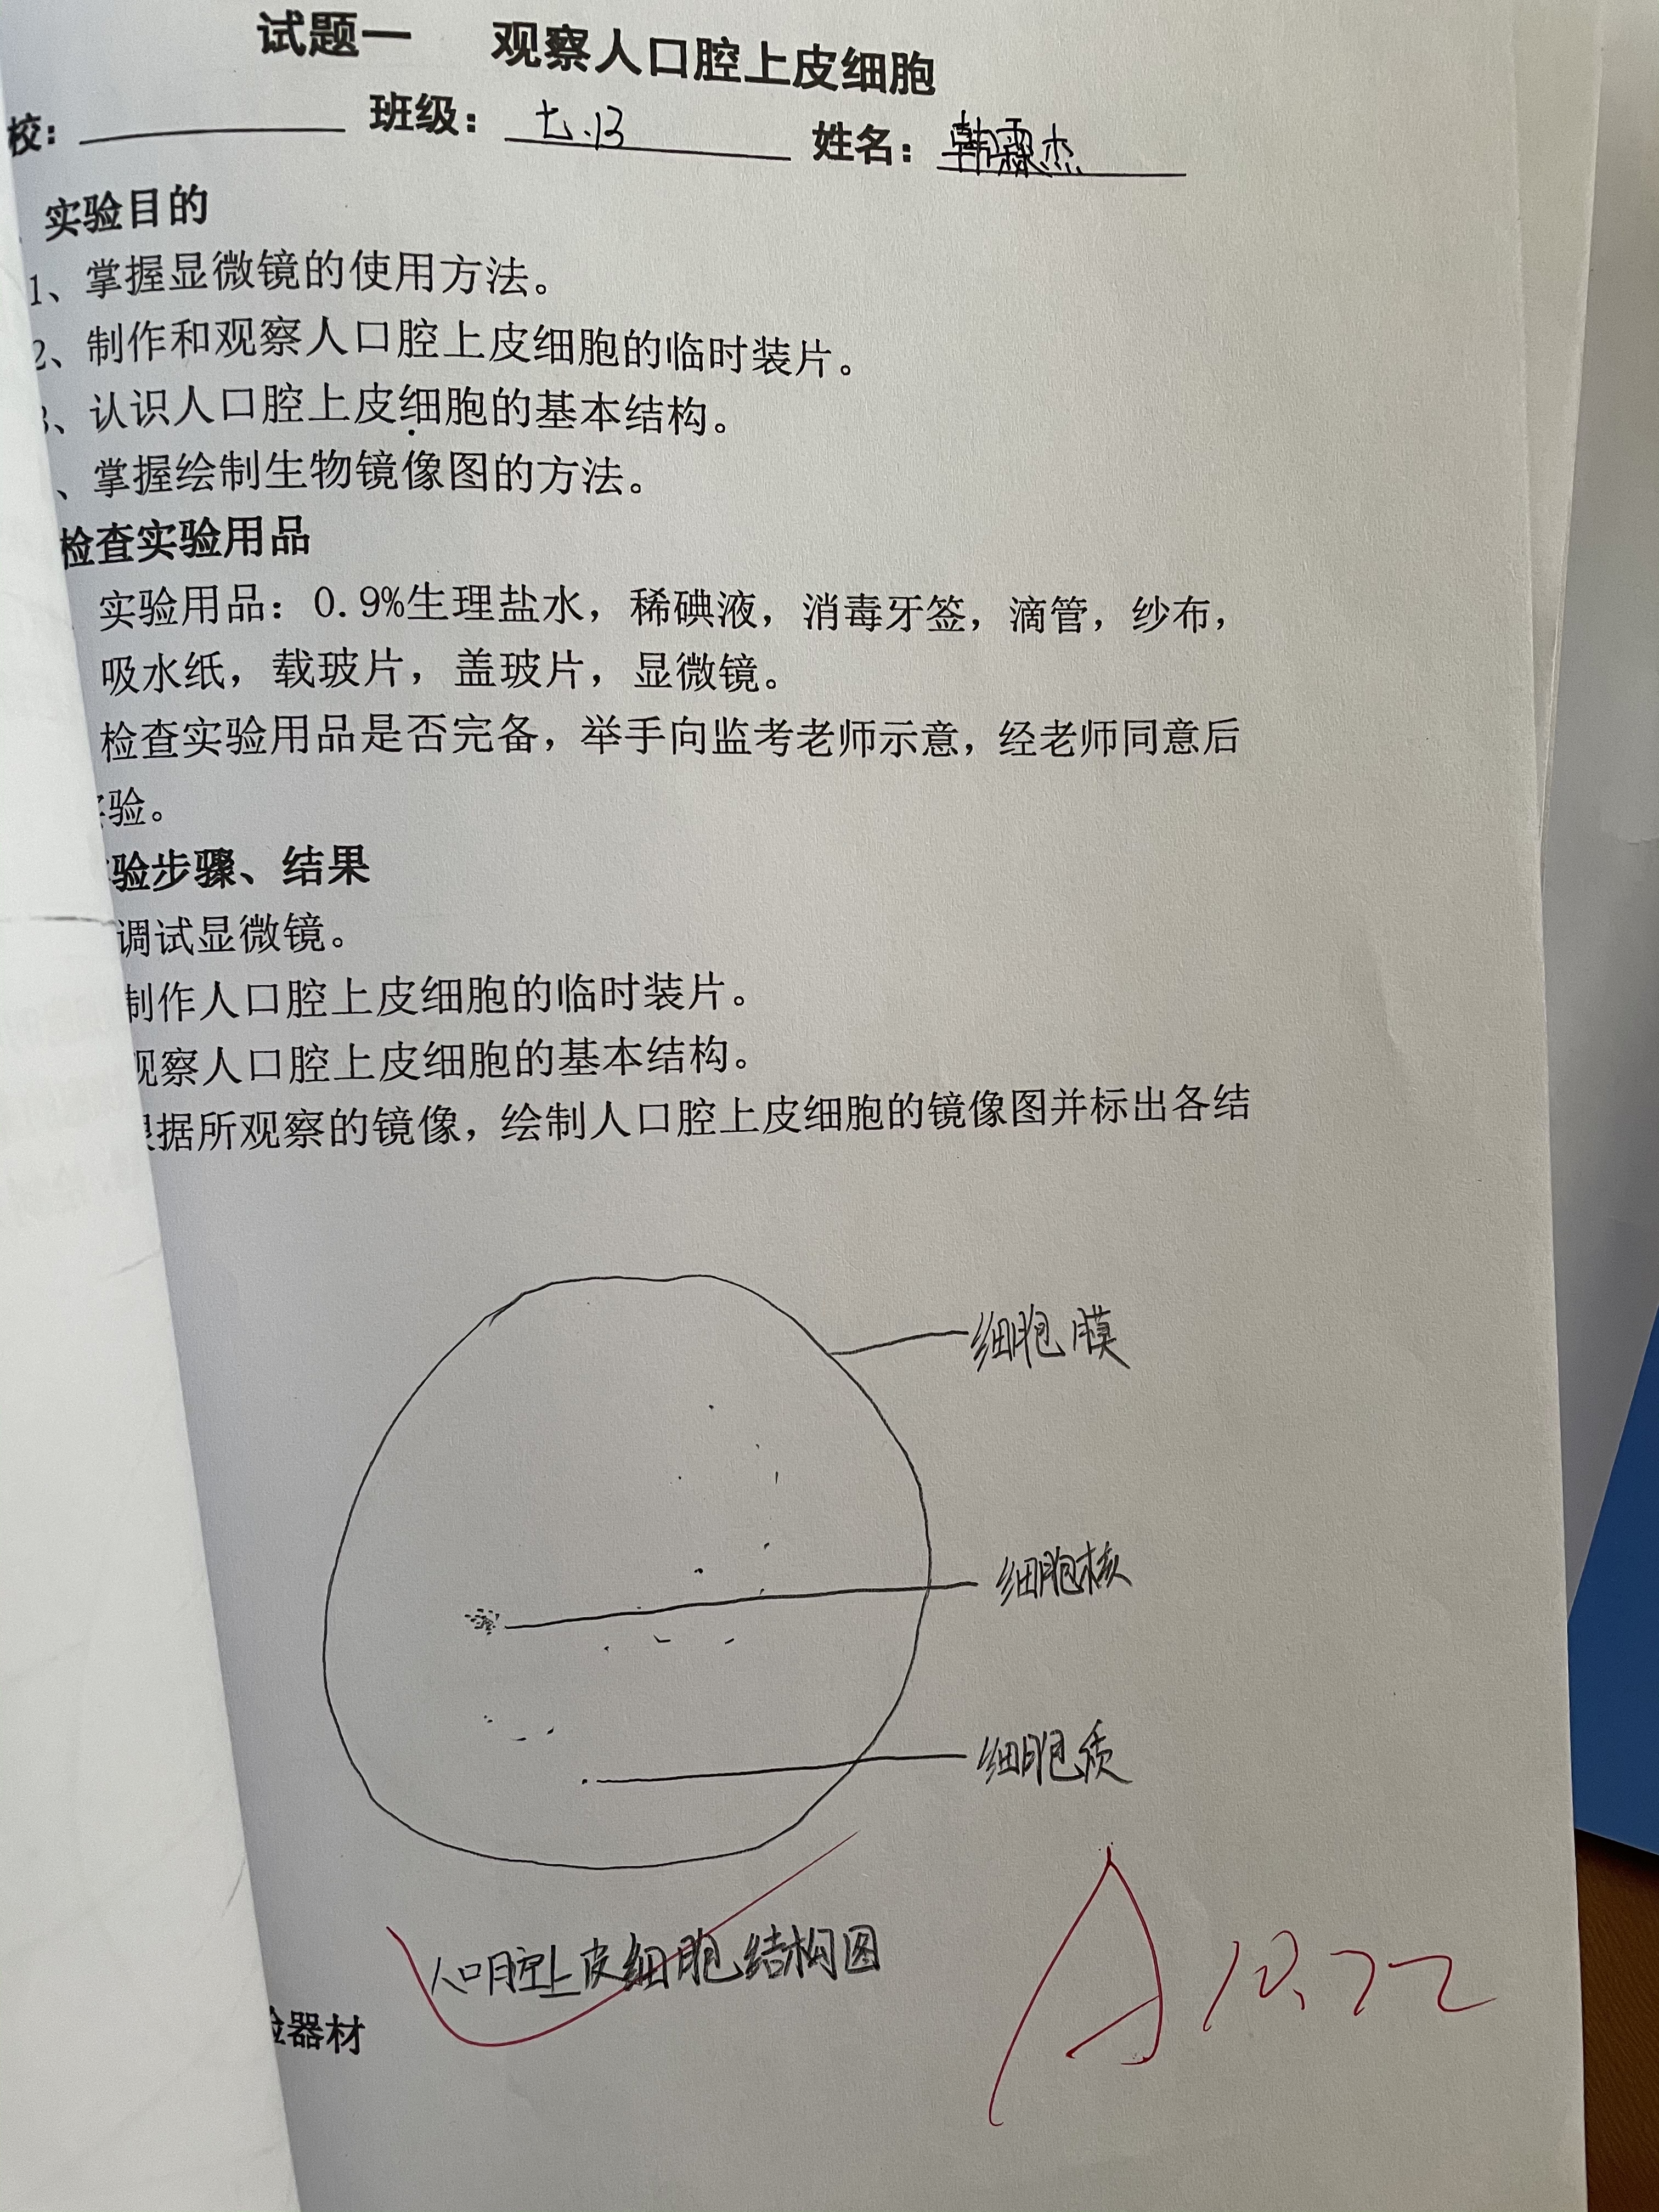 试题一 观察人口腔上皮细胞
校： 班级：七.13 姓名：韩霖杰
实验目的
1、掌握显微镜的使用方法。
2、制作和观察人口腔上皮细胞的临时装片。
3、认识人口腔上皮细胞的基本结构。
、掌握绘制生物镜像图的方法。
检查实验用品
实验用品：0.9%生理盐水，稀碘液，消毒牙签，滴管，纱布，
吸水纸，载玻片，盖玻片，显微镜。
检查实验用品是否完备，举手向监考老师示意，经老师同意后
验。
验步骤、结果
调试显微镜。
制作人口腔上皮细胞的临时装片。
观察人口腔上皮细胞的基本结构。
根据所观察的镜像，绘制人口腔上皮细胞的镜像图并标出各结
细胞膜
细胞核
细胞质
人口腔上皮细胞结构图
A 10.22
验器材